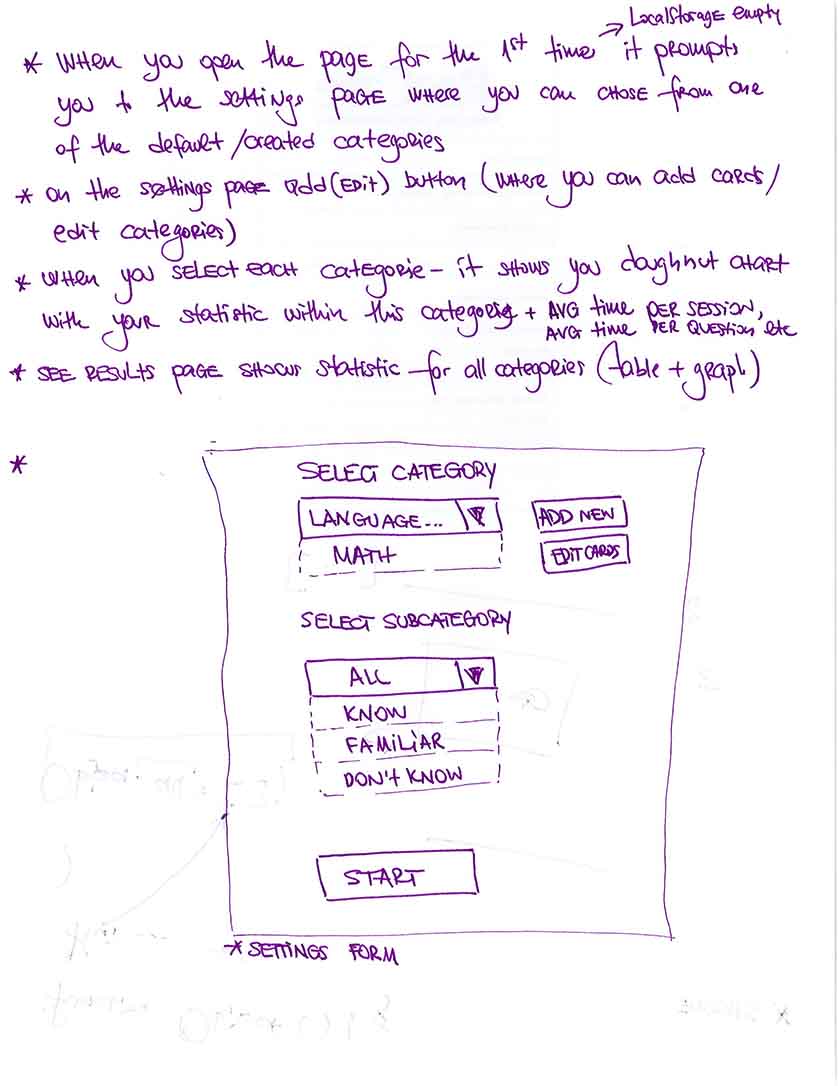 → LocalStorage empty
* When you open the page for the 1st time it prompts
you to the settings page where you can chose from one
of the default/created categories
* on the settings page add (EDIT) button (where you can add cards/
edit categories)
* when you SELECT EACH categorie - it shows you doughnut chart
with your statistic within this categorie + AVG time PER SESSION,
AVG time PER QUESTION etc
* SEE RESULTS page shows statistic for all categories (table + graph)
*
SELECT CATEGORY
LANGUAGE... ADD NEW
MATH EDIT CARDS
SELECT SUBCATEGORY
ALL
KNOW
FAMILIAR
DON'T KNOW
START
* SETTINGS FORM